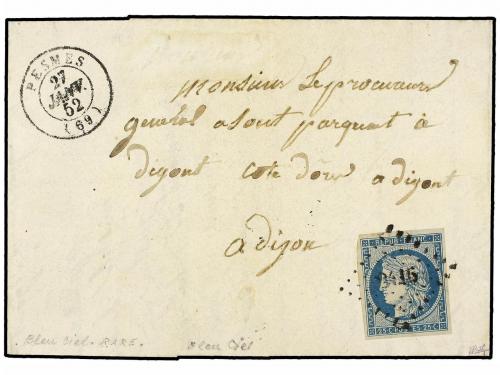 PESMES
27
JANV.
52
(69)
monsieur Le procureur
general a sont parquet à
dijont cote dôre a dijont
a dijon
REPUB. FRANC.
2415
25 C. POSTES 25 C.
Bleu ciel - RARE.
Bleu Ciel